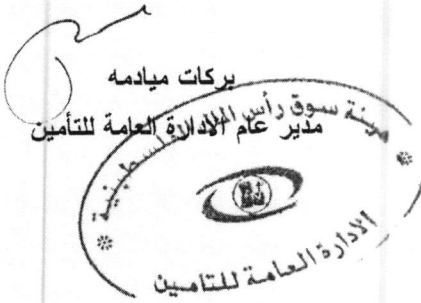 بركات ميادمه
مدير عام الادارة العامة للتأمين
هيئة سوق رأس المال الفلسطينية
الادارة العامة للتامين